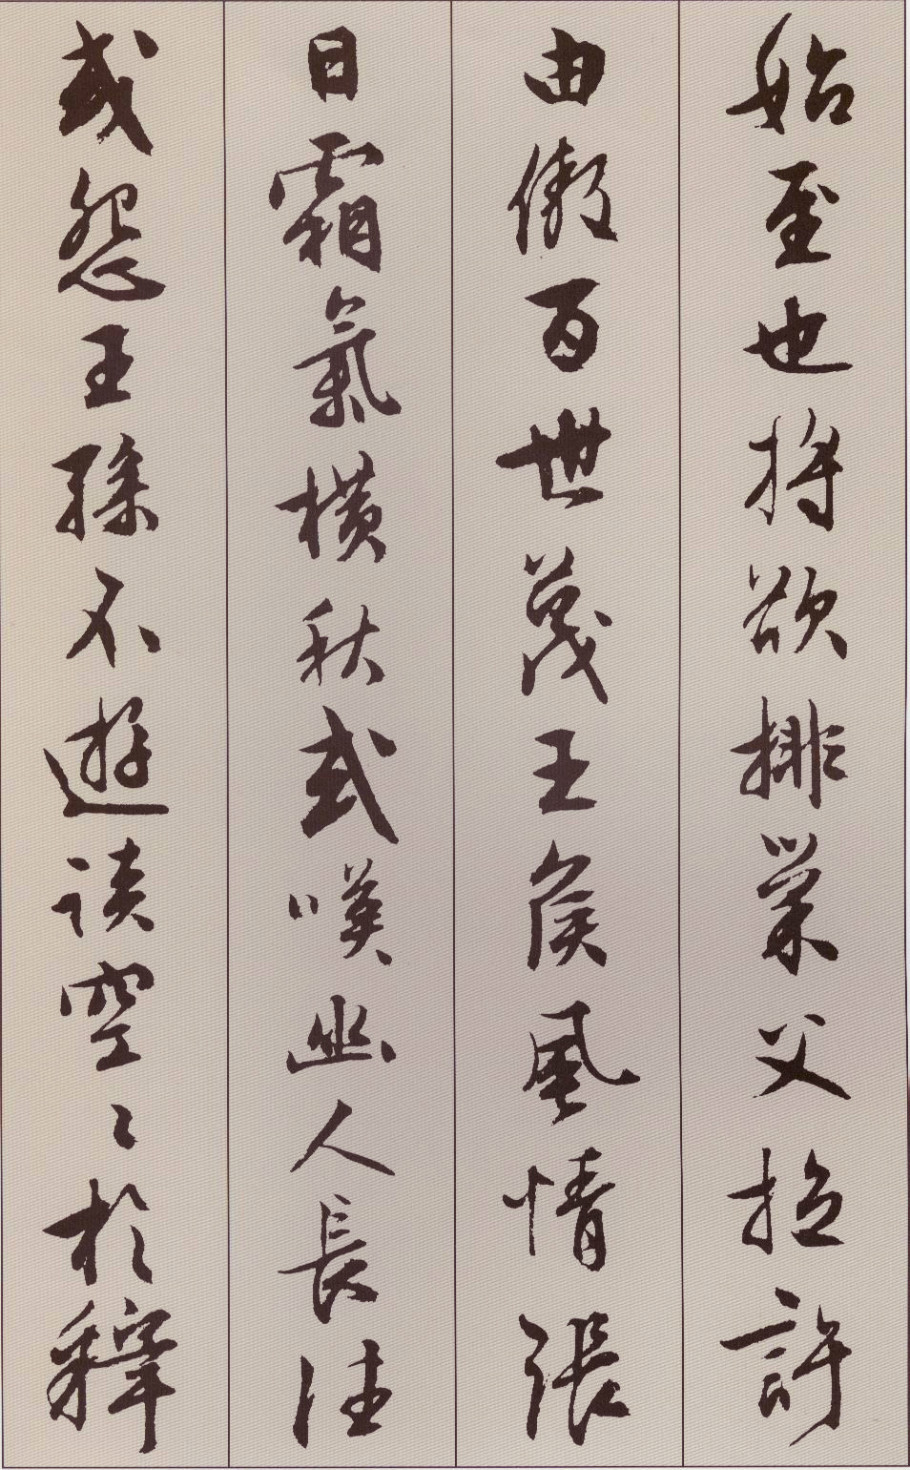 始至也將欲排巢父拉許
由傲百世蔑王侯風情張
日霜氣橫秋或嘆幽人長往
或怨王孫不遊談空〻於釋